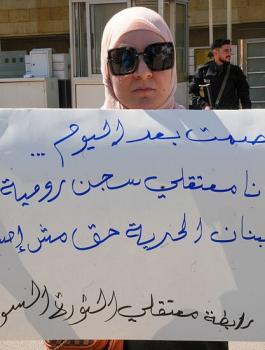 صمت بعد اليوم ...
نا معتقلي سجن رومية
بنان الحرية حق مش إحس
رابطة معتقلي الثورة السو